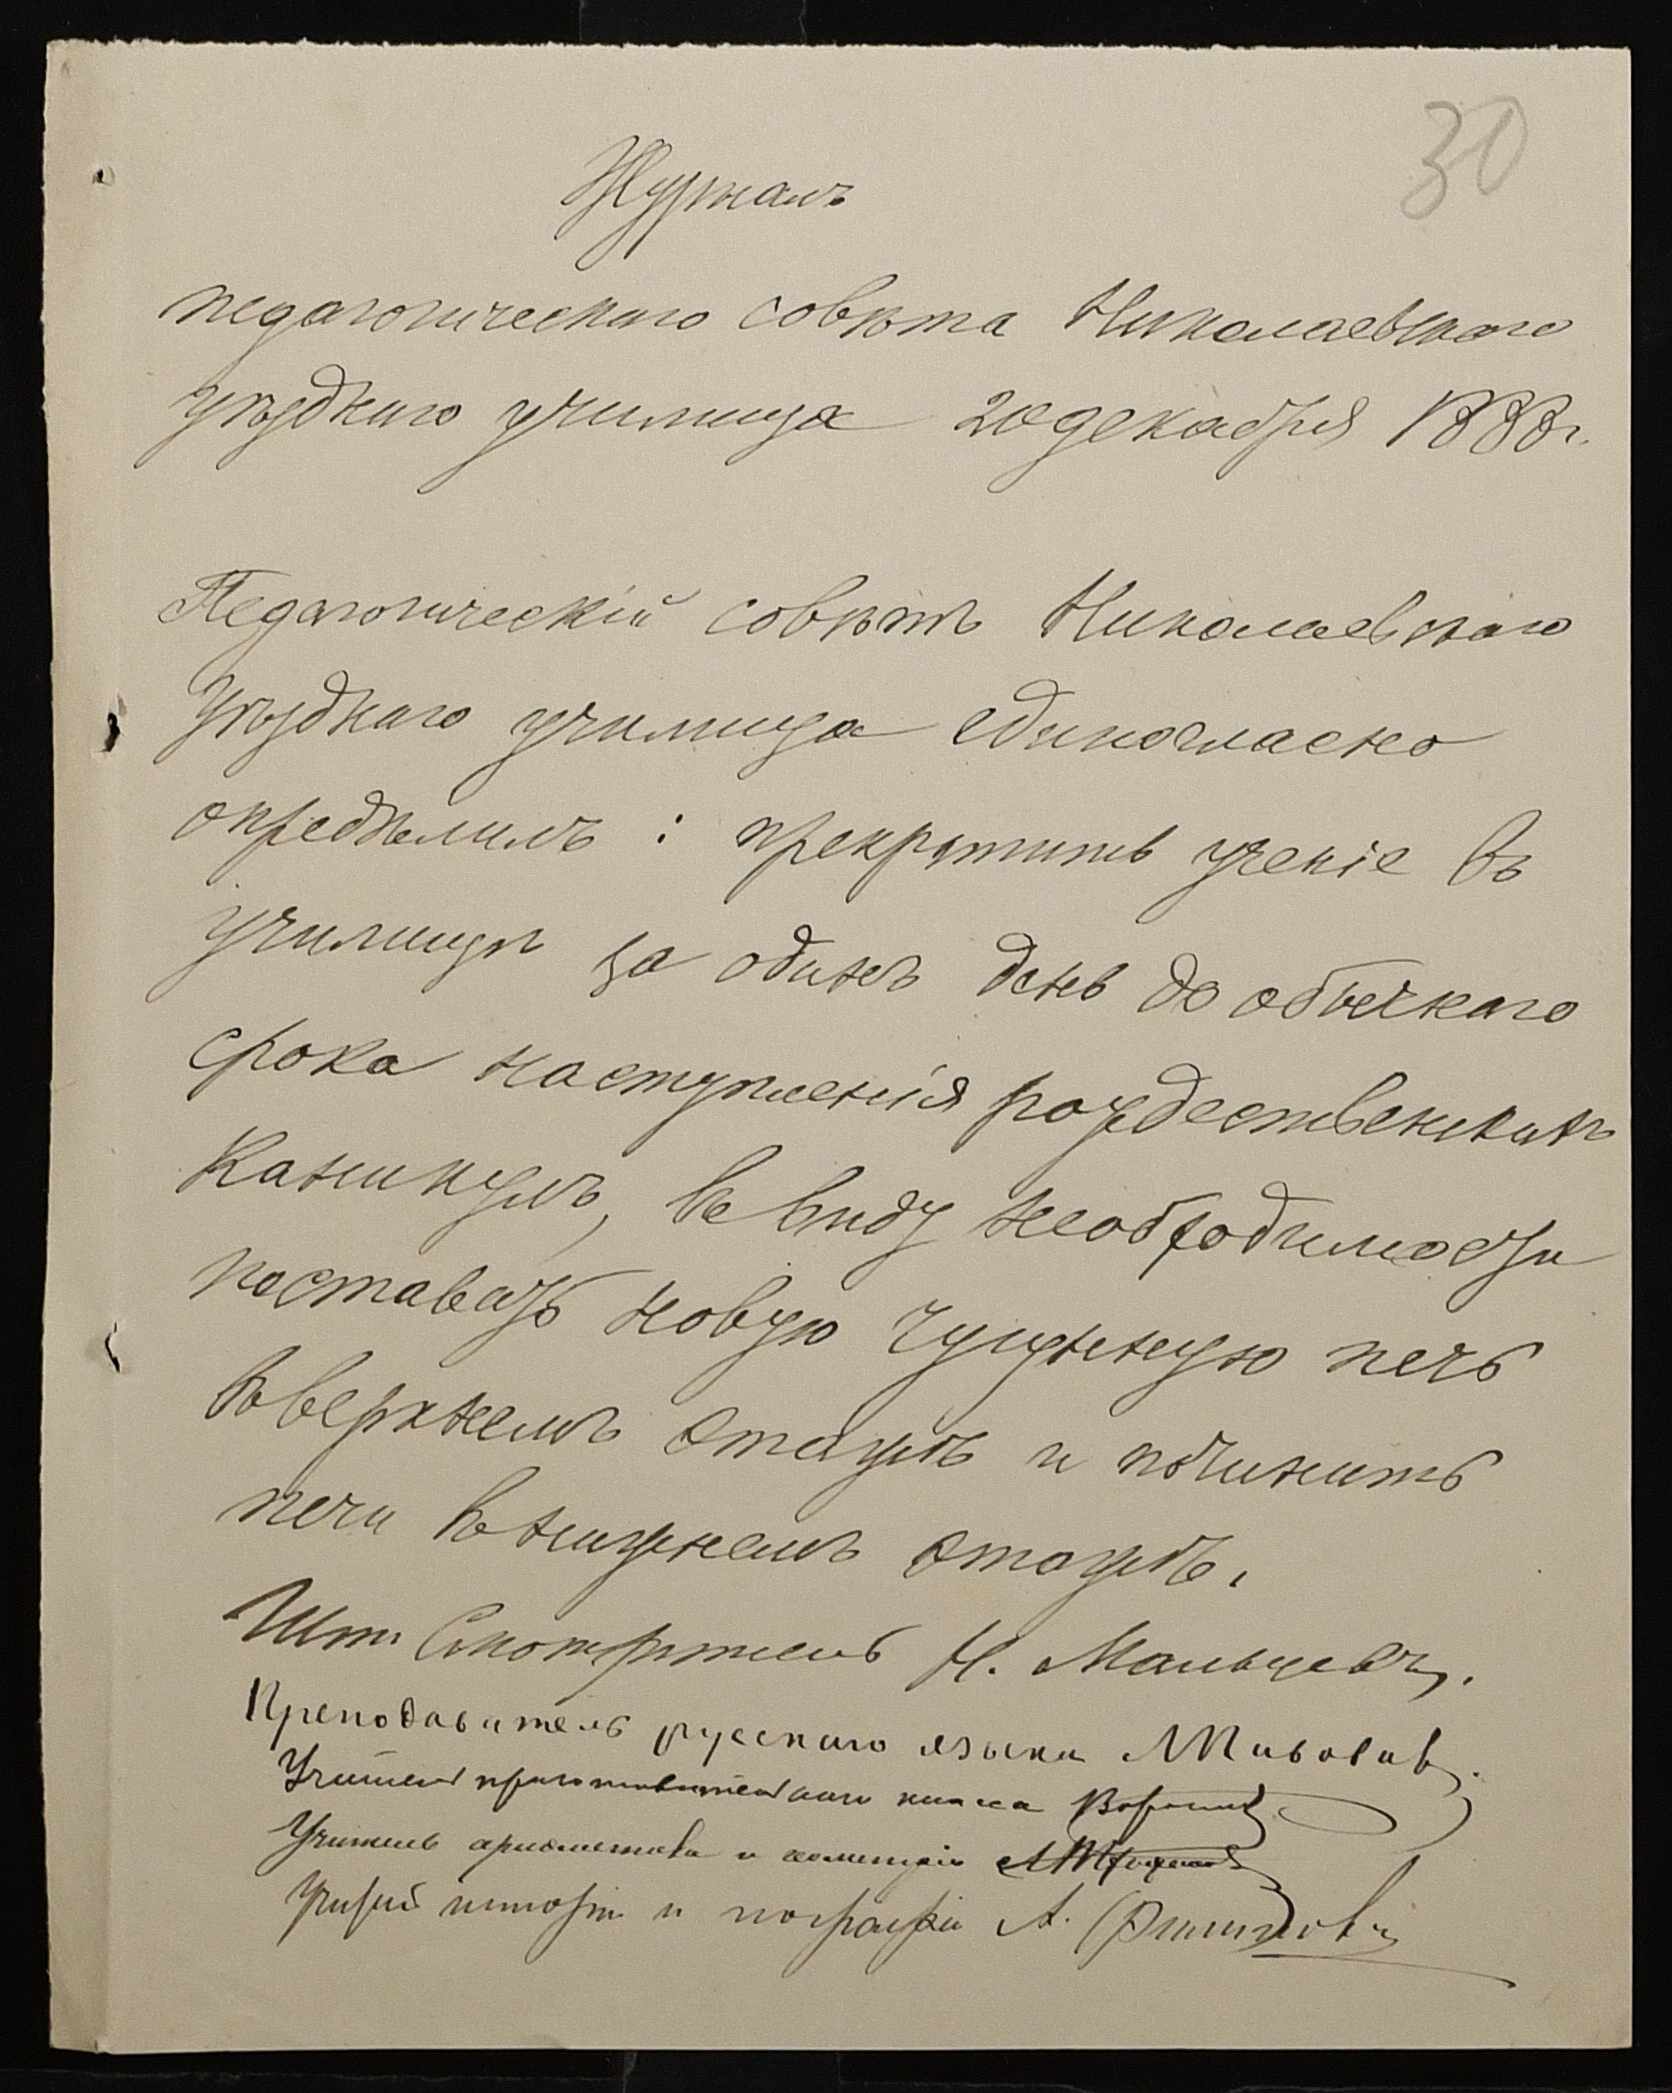 30
Журналъ
педагогическаго совѣта Николаевскаго
уѣзднаго училища 20 декабря 1888 г.
Педагогическій совѣтъ Николаевскаго
уѣзднаго училища единогласно
опредѣлилъ: прекратить ученіе въ
училищѣ за одинъ день до обычнаго
срока наступленія рождественскихъ
каникулъ, въ виду необходимости
поставить новую чугунную печь
въ верхнемъ этажѣ и починить
печи въ нижнемъ этажѣ.
Шт. Смотритель Н. Мальцевъ.
Преподаватель русскаго языка Пивовавъ.
Учитель приготовительнаго класса
Учитель ариѳметики и геометріи
Учитель исторіи и географіи А. Филиповъ